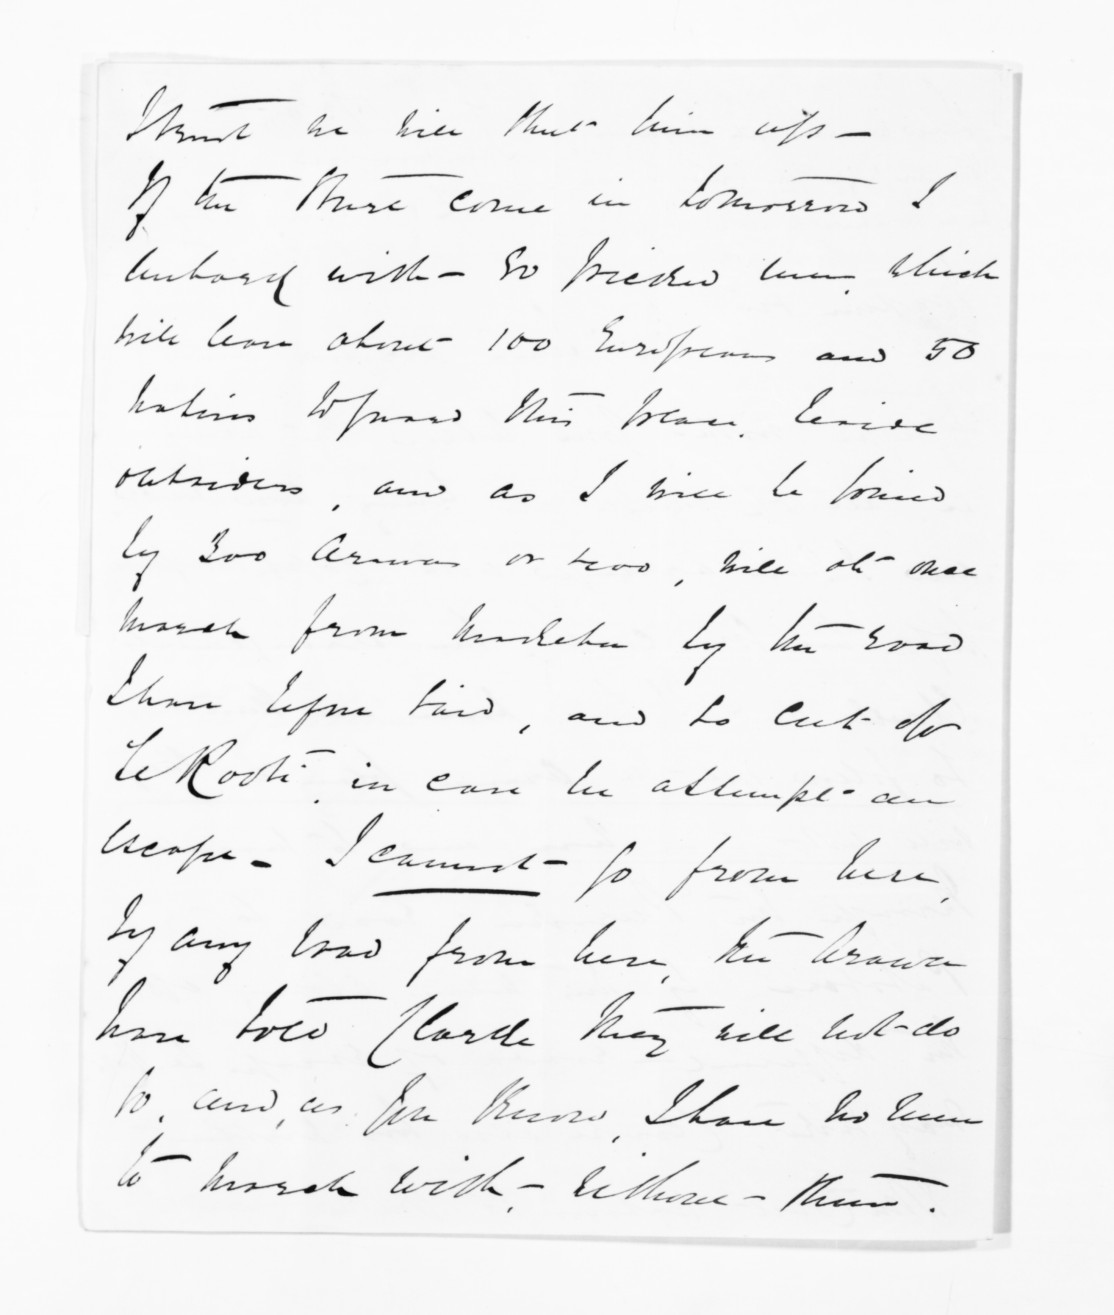 I trust we will shut him up —
If the Sturt come in tomorrow I
embark with — 30 picked men, which
will leave about 100 Europeans and 50
natives to guard this place, beside
outsiders, and as I will be joined
by 300 Arawas or two, will at once
march from Maketu by the road
I have before said, and so cut off
Te Kooti, in case he attempt an
escape — I cannot — go from here,
by any road from here, the Arawa
have told Clarke they will not do
so, and, as you know, I have no men
to march with, — without — them.